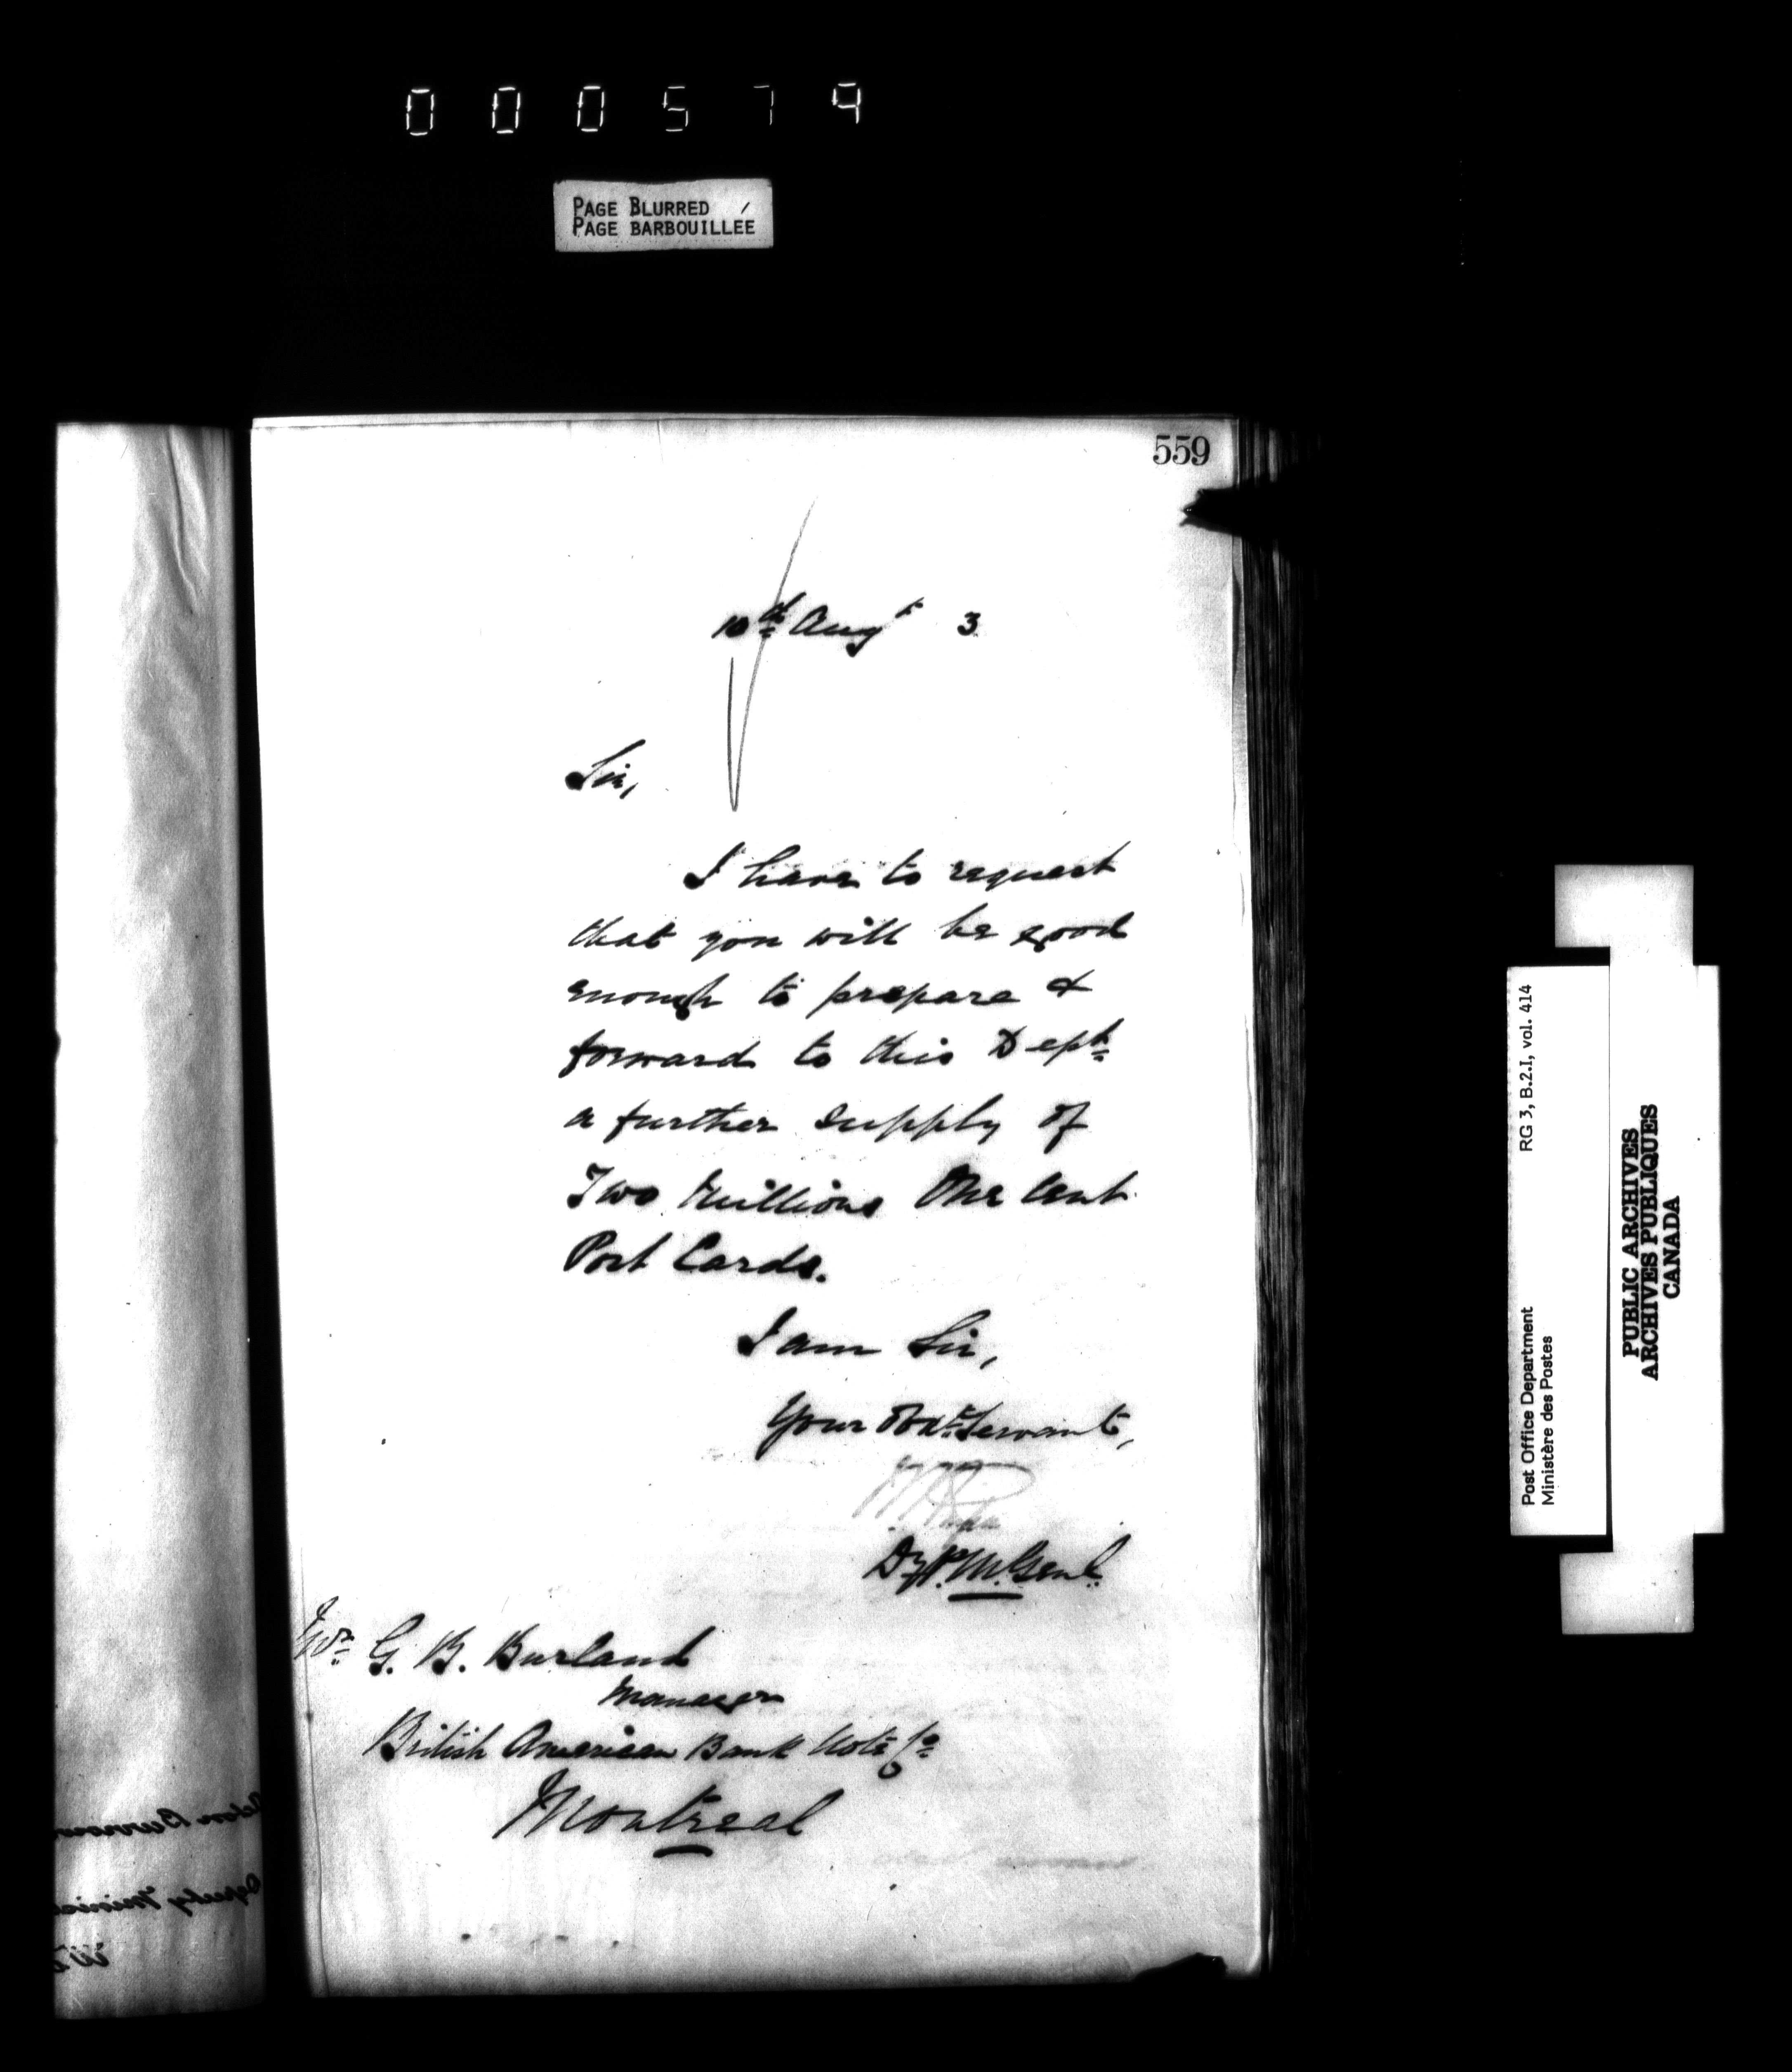 000579
PAGE BLURRED
PAGE BARBOUILLÉE
559
10th Augt 3
Sir,
I have to request
that you will be good
enough to prepare &
forward to this Dept
a further supply of
Two Millions One Cent
Post Cards.
I am Sir,
Your Obdt Servant,
Dy P. M. Genl.
G. B. Burland
Manager
British American Bank Note Co
Montreal
Post Office Department RG 3, B.2.I, vol. 414
Ministère des Postes
PUBLIC ARCHIVES
ARCHIVES PUBLIQUES
CANADA